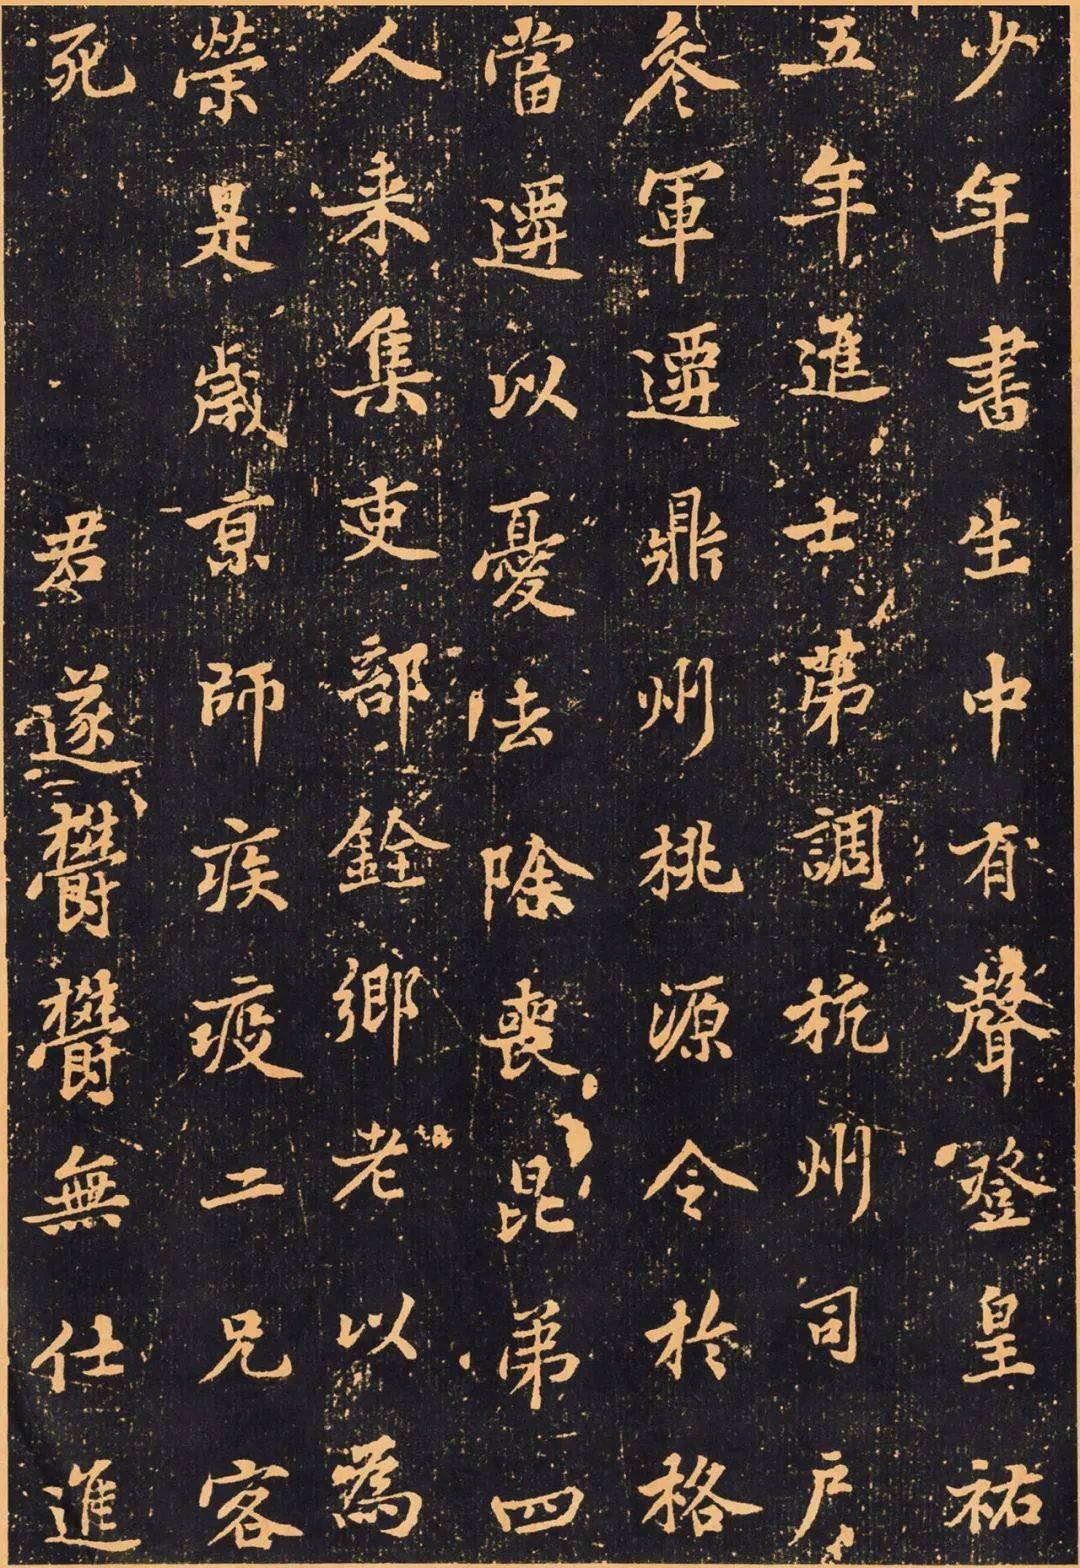 少年書生中有聲登皇祐
五年進士第調杭州司戶
叅軍遷鼎州桃源令於格
當遷以憂法除喪昆弟四
人来集吏部銓鄉老以為
榮是歲京師疾疫二兄客
死 君遂鬱鬱無仕進